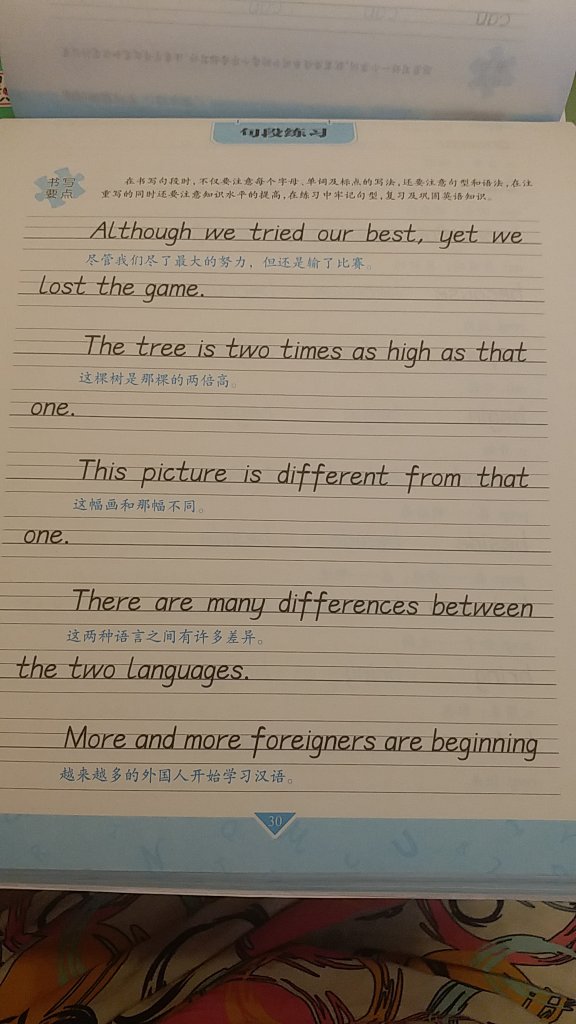 can
句段练习
书写
要点
在书写句段时,不仅要注意每个字母、单词及标点的写法,还要注意句型和语法,在注
重写的同时还要注意知识水平的提高,在练习中牢记句型,复习及巩固英语知识。
Although we tried our best, yet we
尽管我们尽了最大的努力，但还是输了比赛。
lost the game.
The tree is two times as high as that
这棵树是那棵的两倍高。
one.
This picture is different from that
这幅画和那幅不同。
one.
There are many differences between
这两种语言之间有许多差异。
the two languages.
More and more foreigners are beginning
越来越多的外国人开始学习汉语。
30